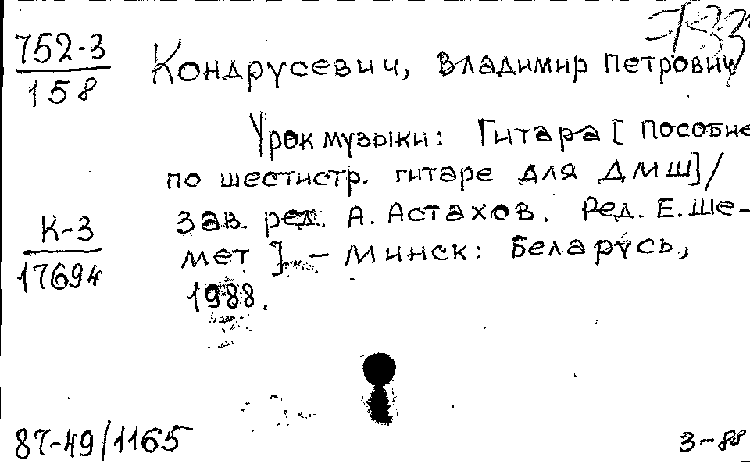 733
752-3
158
Кондрусевич, Владимир Петрович
Урок музыки: Гитара [Пособие
по шестистр. гитаре для ДМШ]/
Зав. ред. А. Астахов. Ред. Е. Ше-
мет]. — Минск: Беларусь,
1988.
К-3
17694
87-49/1165
3-88